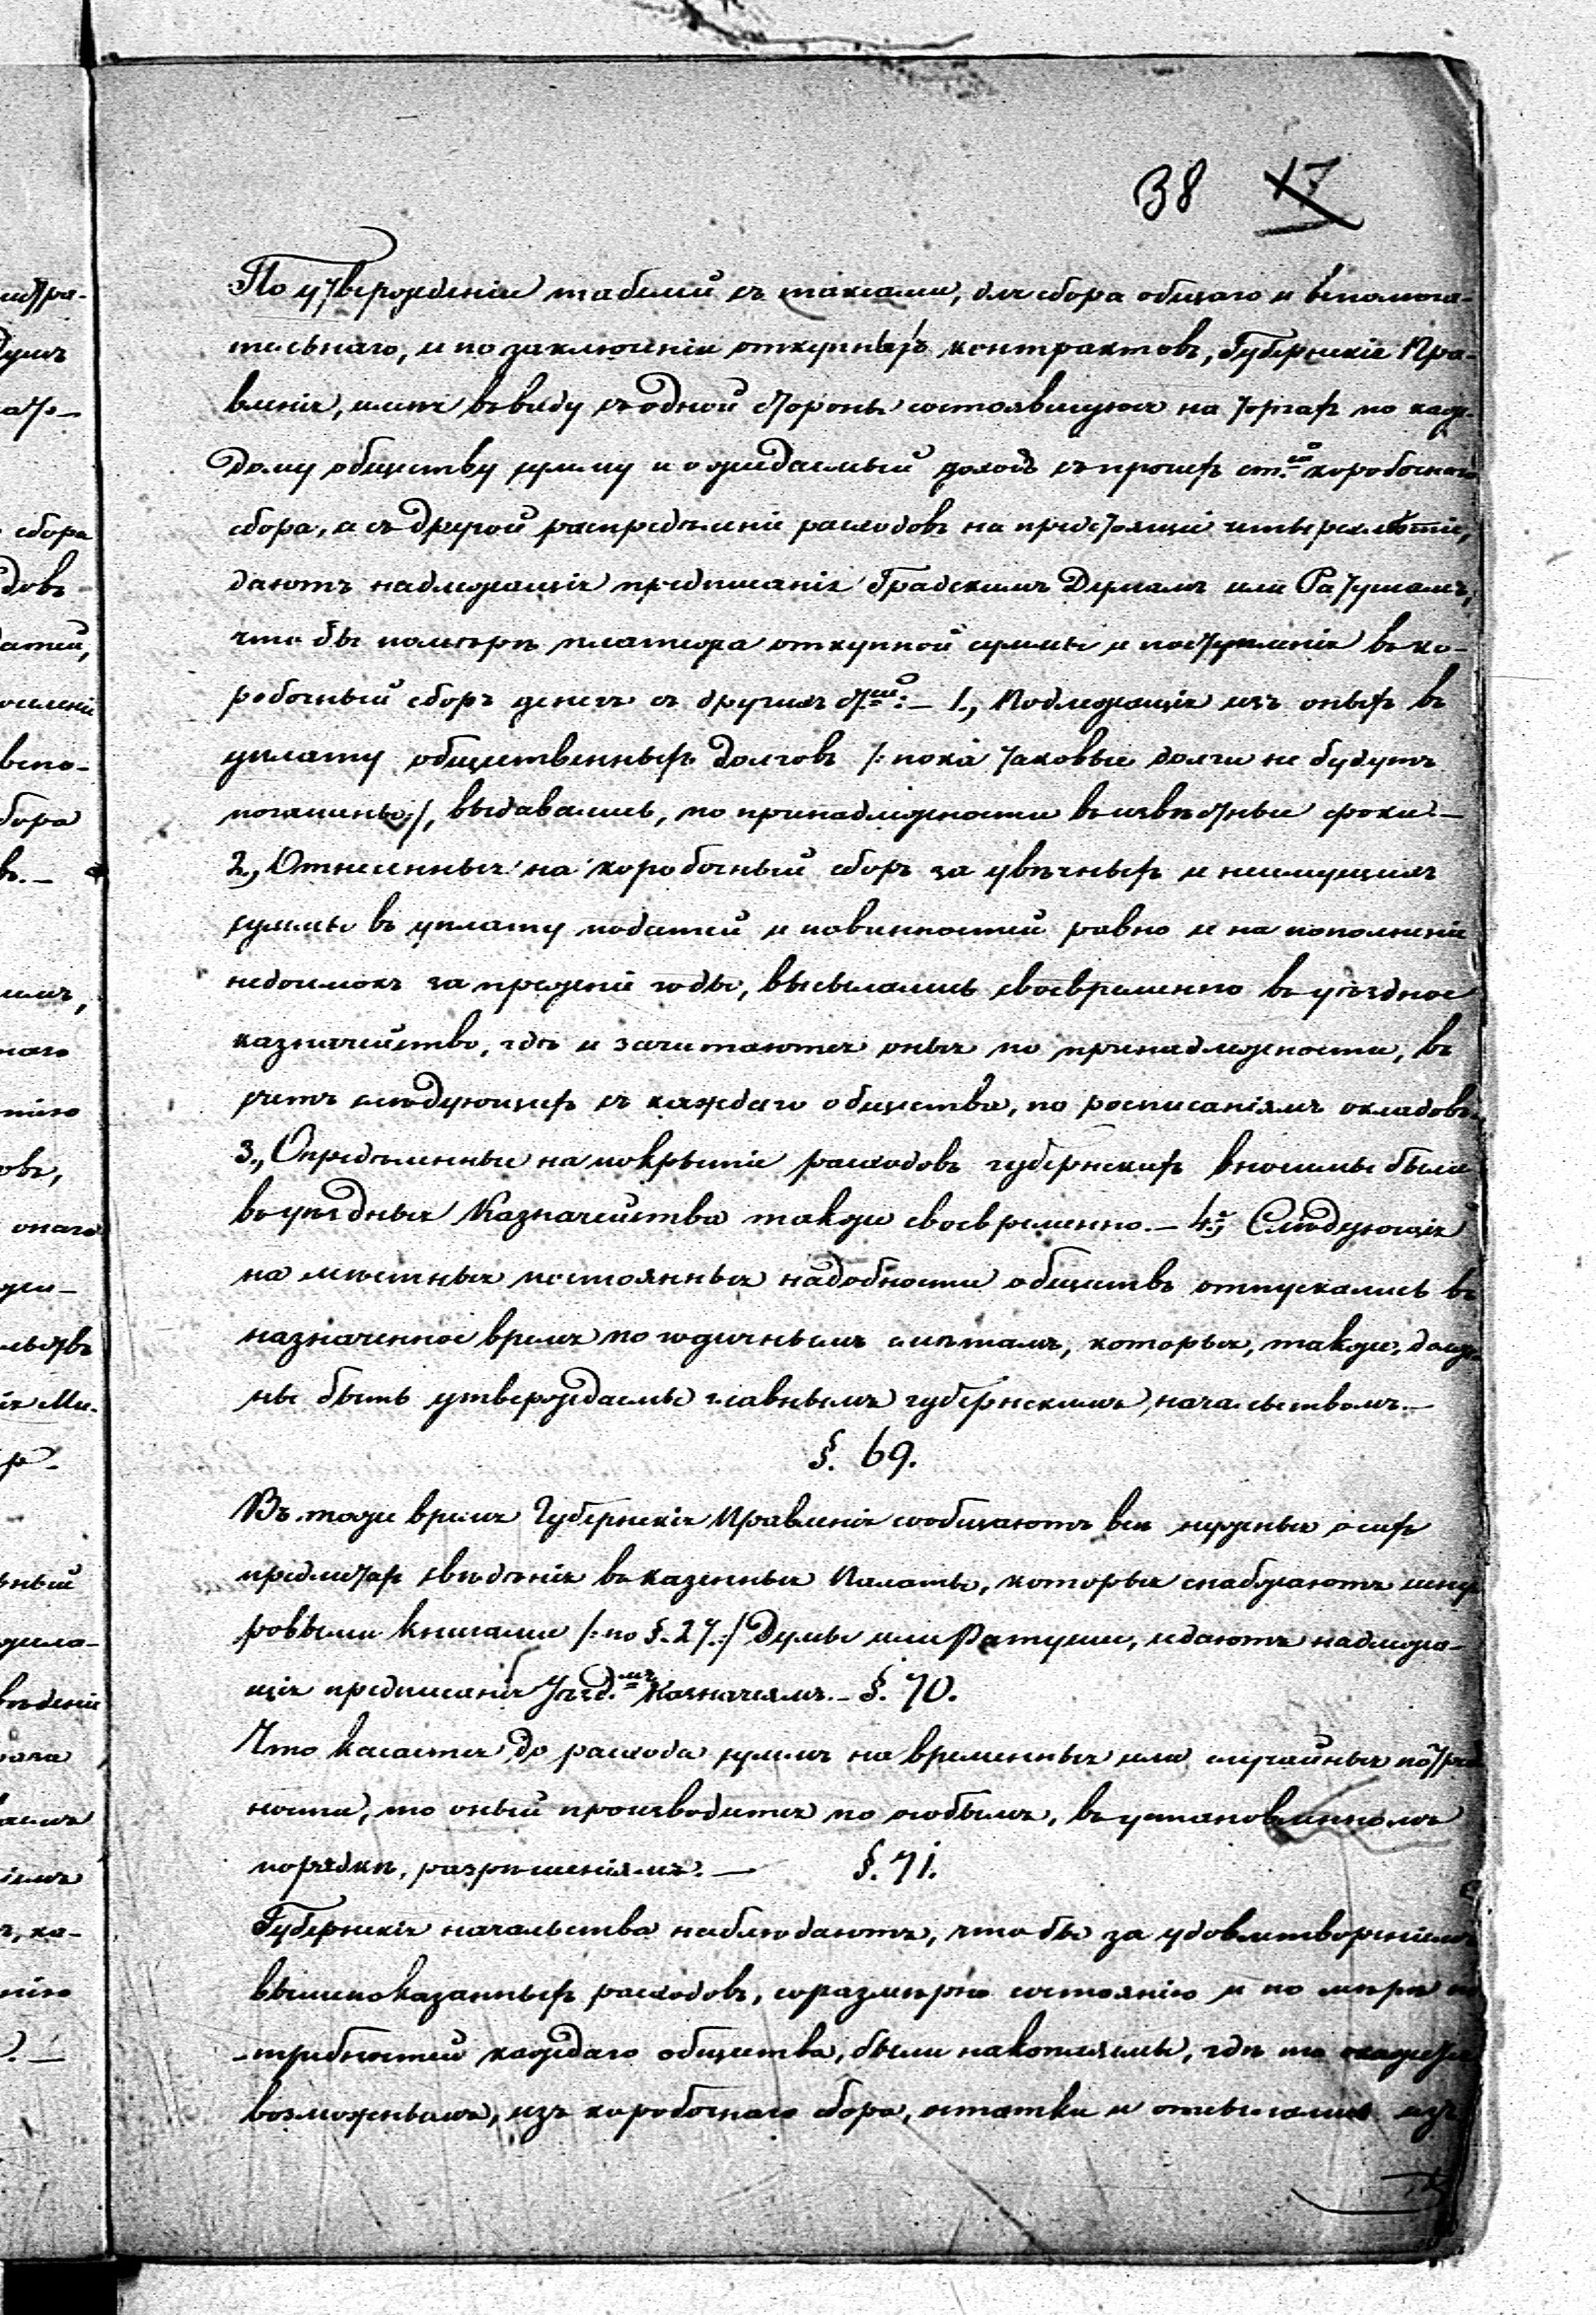 38 17
По утвержденіи табелей съ таксами, для сбора общаго и вспомога-
тельнаго, и по заключеніи откупныхъ контрактовъ, Губернскіе Пра-
вленія, имея въ виду съ одной стороны состоявшуюся на торгахъ по каж-
дому обществу сумму и ожидаемый доходъ съ прочихъ ст.ей коробочнаго
сбора, а съ другой распределеніе расходовъ на предстоящее четырехлетіе,
даютъ надлежащія предписанія Градскимъ Думамъ или Ратушамъ,
что бы по мѣрѣ платежа откупной суммы и поступленія въ ко-
робочный сборъ денегъ съ другихъ ст.ей: – 1., Подлежащія изъ оныхъ въ
уплату общественныхъ долговъ /: пока таковые долги не будутъ
погашены :/, выдавались, по принадлежности въ извѣстные сроки. –
2., Отнесенныя на коробочный сборъ за увѣчныхъ и неимущихъ
суммы въ уплату податей и повинностей равно и на пополненіе
недоимокъ за прежніе годы, высылались своевременно въ уѣздное
казначейство, гдѣ и зачитаются оныя по принадлежности, въ
счетъ слѣдующихъ съ каждаго общества, по росписаніямъ окладовъ.
3., Опредѣленные на покрытіе расходовъ губернскихъ вносимы были
въ уѣздныя Казначейства также своевременно. – 4., Слѣдующія
на местныя постоянныя надобности обществъ отпускались въ
назначенное время по годичнымъ смѣтамъ, которыя, также, долж-
ны быть утверждаемы главнымъ губернскимъ начальствомъ. –
§. 69.
Въ тоже время Губернскія Правленія сообщаютъ все нужныя о сихъ
предметахъ свѣдѣнія въ казенныя Палаты, которыя снабжаютъ шну-
ровыми книгами /: по §. 27. :/ Думы или Ратуши, и даютъ надлежа-
щія предписанія Уѣзд.мъ Казначеямъ. – §. 70.
Что касается до расхода суммъ на временныя или случайныя потреб
ности, то оный производится по особымъ, въ установленномъ
порядкѣ, разрѣшеніямъ. – §. 71.
Губернскія начальства наблюдаютъ, что бы за удовлетвореніемъ
вышепоказанныхъ расходовъ, соразмѣрно состоянію и по мѣрѣ по
-требностей каждаго общества, были накопляемы, гдѣ то окажется
возможнымъ, изъ коробочнаго сбора, остатки и отсылались изъ